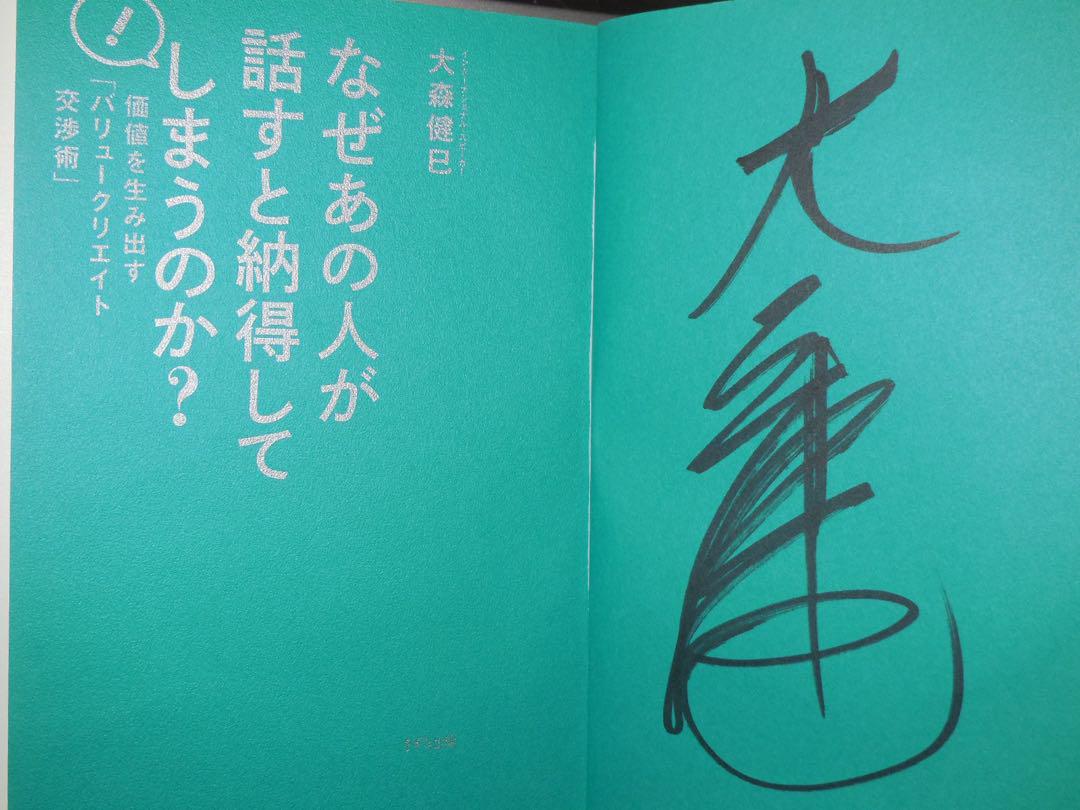 大森健巳
なぜあの人が
話すと納得して
しまうのか？
！
価値を生み出す
「バリュークリエイト
交渉術」
きずな出版
大